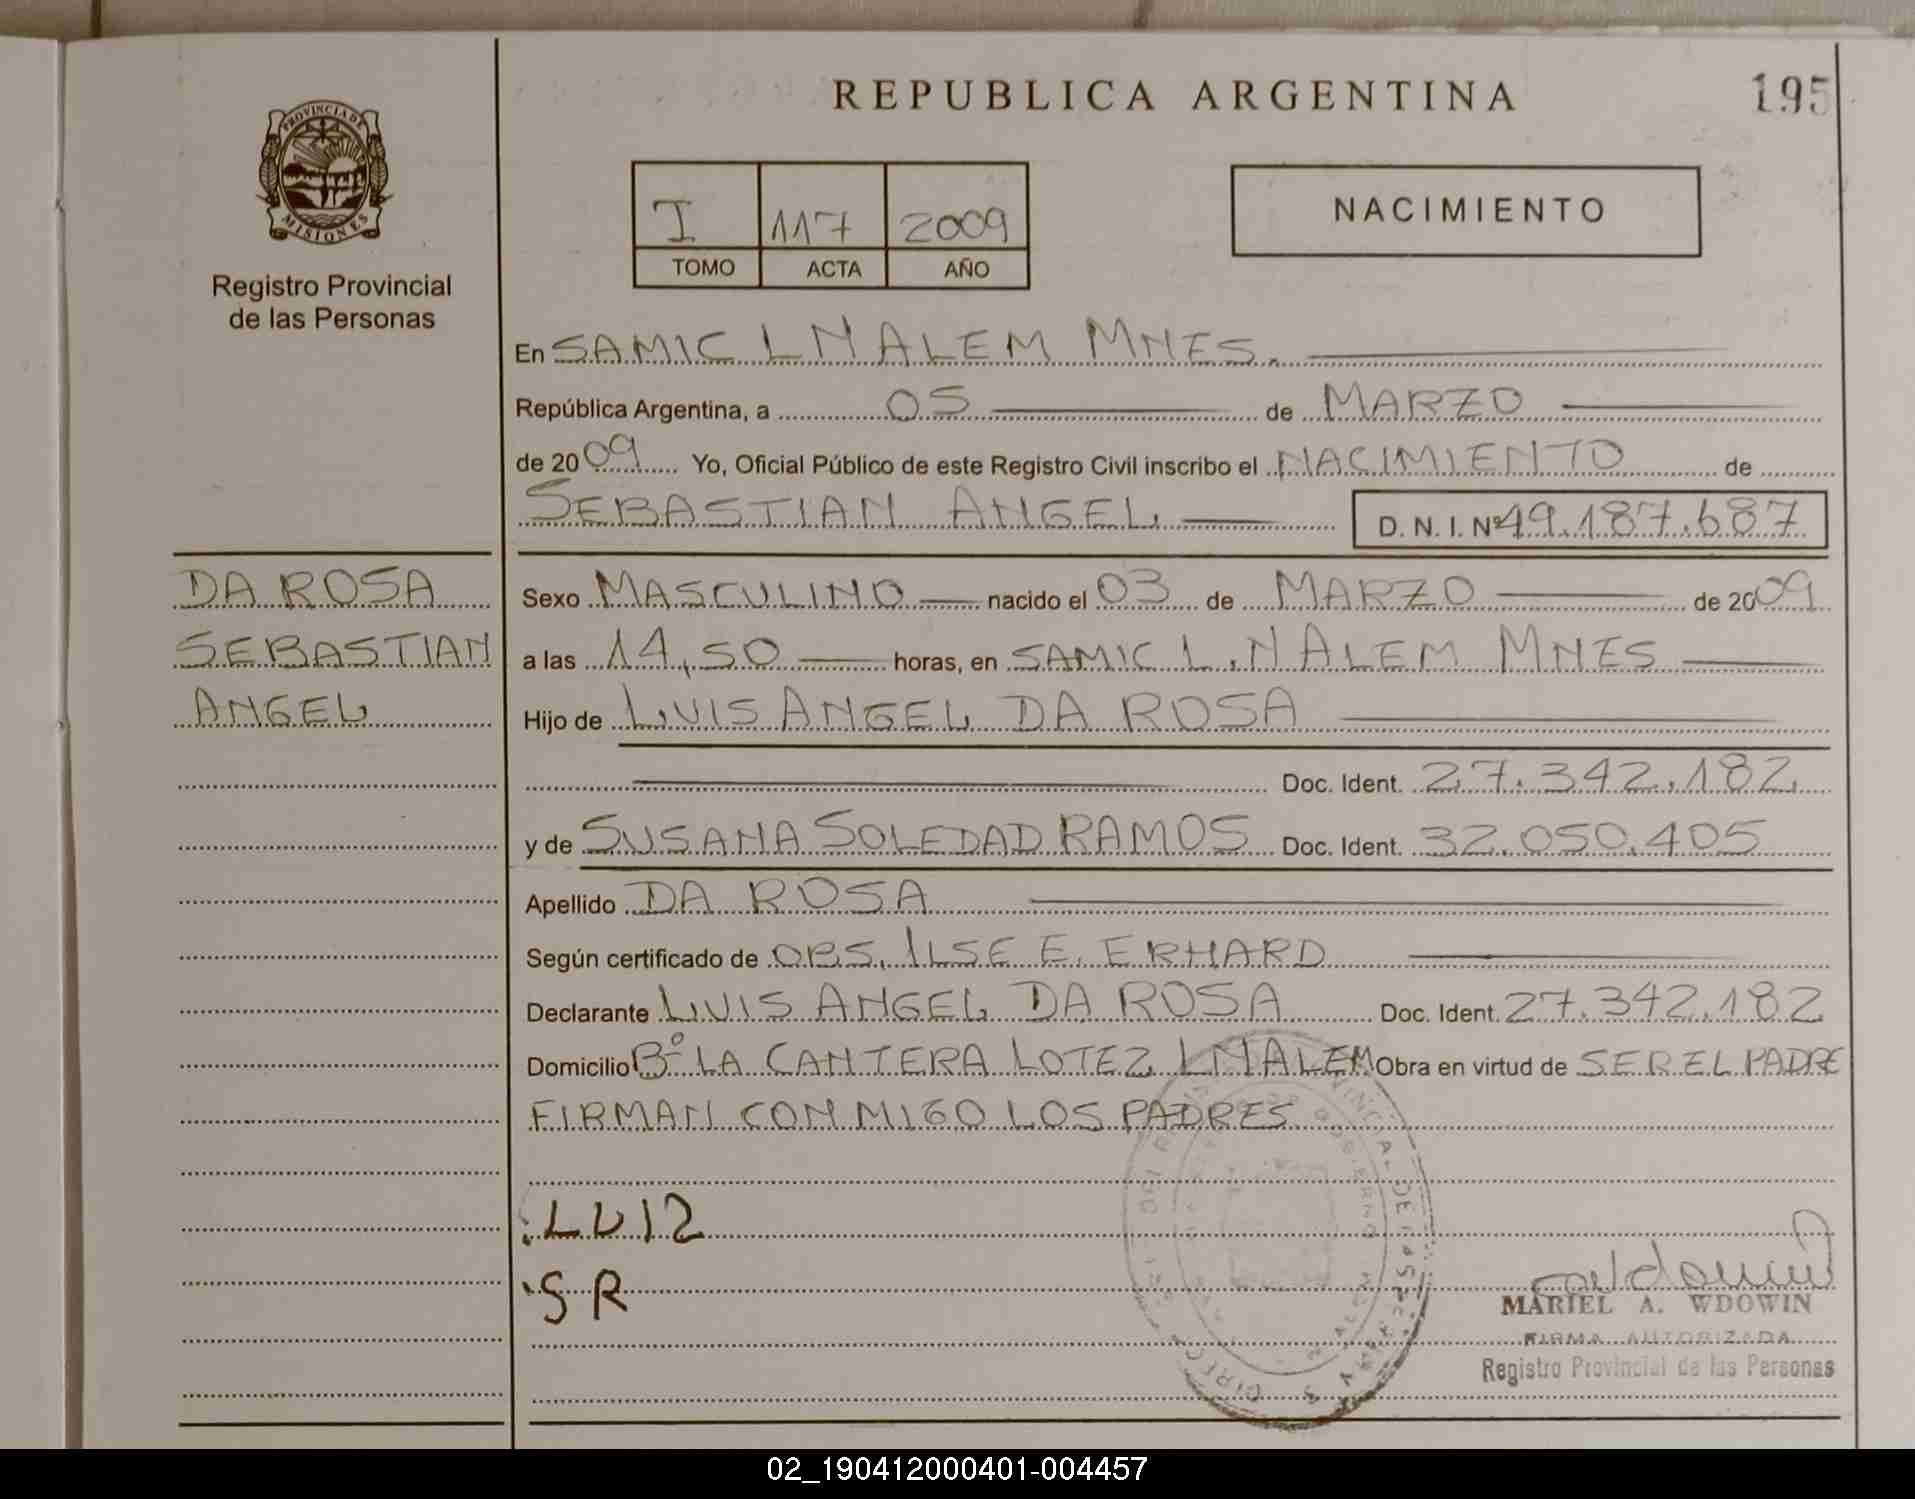 REPUBLICA ARGENTINA
195
PROVINCIA DE
MISIONES
Registro Provincial
de las Personas
I 117 2009
TOMO ACTA AÑO
NACIMIENTO
En SAMIC L N ALEM MNES.
República Argentina, a 05 de MARZO
de 2009 Yo, Oficial Público de este Registro Civil inscribo el NACIMIENTO de
SEBASTIAN ANGEL D. N. I. Nº 49.187.687
DA ROSA
SEBASTIAN
ANGEL
Sexo MASCULINO nacido el 03 de MARZO de 2009
a las 14,50 horas, en SAMIC L.N ALEM MNES
Hijo de LUIS ANGEL DA ROSA
Doc. Ident. 27.342.182
y de SUSANA SOLEDAD RAMOS Doc. Ident. 32.050.405
Apellido DA ROSA
Según certificado de OBS. ILSE E. ERHARD
Declarante LUIS ANGEL DA ROSA Doc. Ident. 27.342.182
Domicilio Bº LA CANTERA LOTE 2 L N ALEM Obra en virtud de SER EL PADRE
FIRMAN CON MIGO LOS PADRES
LUIZ
S R
MARIEL A. WDOWIN
FIRMA AUTORIZADA
Registro Provincial de las Personas
02_190412000401-004457